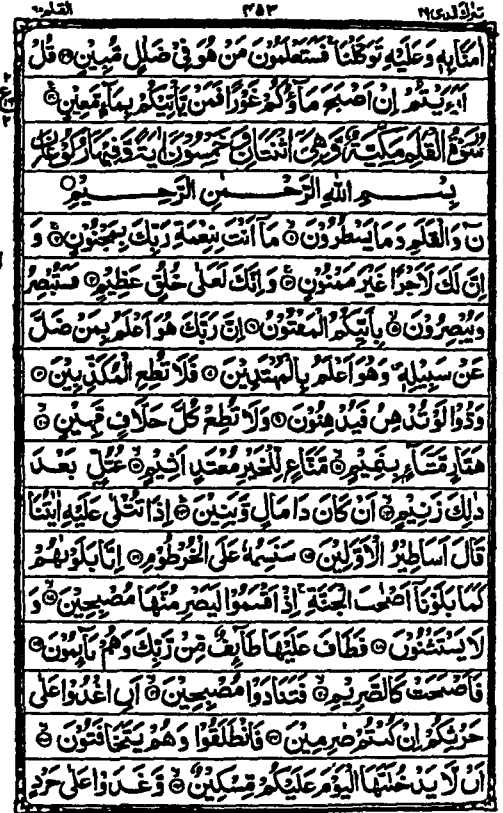 تبارك الذى ٢٩ ٤٥٣ القلم ٦٨
اٰمَنَّا بِهٖ وَعَلَيْهِ تَوَكَّلْنَا فَسَتَعْلَمُوْنَ مَنْ هُوَ فِيْ ضَلٰلٍ مُّبِيْنٍ ۝ قُلْ
اَرَءَيْتُمْ اِنْ اَصْبَحَ مَآؤُكُمْ غَوْرًا فَمَنْ يَّاْتِيْكُمْ بِمَآءٍ مَّعِيْنٍ ۝
سُوْرَةُ الْقَلَمِ مَكِّيَّةٌ وَّهِيَ اثْنَتَانِ وَخَمْسُوْنَ اٰيَةً وَّفِيْهَا رُكُوْعَانِ
بِسْمِ اللهِ الرَّحْمٰنِ الرَّحِيْمِ ۝
نٓ وَالْقَلَمِ وَمَا يَسْطُرُوْنَ ۝ مَآ اَنْتَ بِنِعْمَةِ رَبِّكَ بِمَجْنُوْنٍ ۝ وَ
اِنَّ لَكَ لَاَجْرًا غَيْرَ مَمْنُوْنٍ ۝ وَاِنَّكَ لَعَلٰى خُلُقٍ عَظِيْمٍ ۝ فَسَتُبْصِرُ
وَيُبْصِرُوْنَ ۝ بِاَيِّكُمُ الْمَفْتُوْنُ ۝ اِنَّ رَبَّكَ هُوَ اَعْلَمُ بِمَنْ ضَلَّ
عَنْ سَبِيْلِهٖ وَهُوَ اَعْلَمُ بِالْمُهْتَدِيْنَ ۝ فَلَا تُطِعِ الْمُكَذِّبِيْنَ ۝
وَدُّوْا لَوْ تُدْهِنُ فَيُدْهِنُوْنَ ۝ وَلَا تُطِعْ كُلَّ حَلَّافٍ مَّهِيْنٍ ۝
هَمَّازٍ مَّشَّآءٍۭ بِنَمِيْمٍ ۝ مَّنَّاعٍ لِّلْخَيْرِ مُعْتَدٍ اَثِيْمٍ ۝ عُتُلٍّۭ بَعْدَ
ذٰلِكَ زَنِيْمٍ ۝ اَنْ كَانَ ذَا مَالٍ وَّبَنِيْنَ ۝ اِذَا تُتْلٰى عَلَيْهِ اٰيٰتُنَا
قَالَ اَسَاطِيْرُ الْاَوَّلِيْنَ ۝ سَنَسِمُهٗ عَلَى الْخُرْطُوْمِ ۝ اِنَّا بَلَوْنٰهُمْ
كَمَا بَلَوْنَآ اَصْحٰبَ الْجَنَّةِ ۚ اِذْ اَقْسَمُوْا لَيَصْرِمُنَّهَا مُصْبِحِيْنَ ۝ وَ
لَا يَسْتَثْنُوْنَ ۝ فَطَافَ عَلَيْهَا طَآئِفٌ مِّنْ رَّبِّكَ وَهُمْ نَآئِمُوْنَ ۝
فَاَصْبَحَتْ كَالصَّرِيْمِ ۝ فَتَنَادَوْا مُصْبِحِيْنَ ۝ اَنِ اغْدُوْا عَلٰى
حَرْثِكُمْ اِنْ كُنْتُمْ صٰرِمِيْنَ ۝ فَانْطَلَقُوْا وَهُمْ يَتَخَافَتُوْنَ ۝
اَنْ لَّا يَدْخُلَنَّهَا الْيَوْمَ عَلَيْكُمْ مِّسْكِيْنٌ ۝ وَّغَدَوْا عَلٰى حَرْدٍ